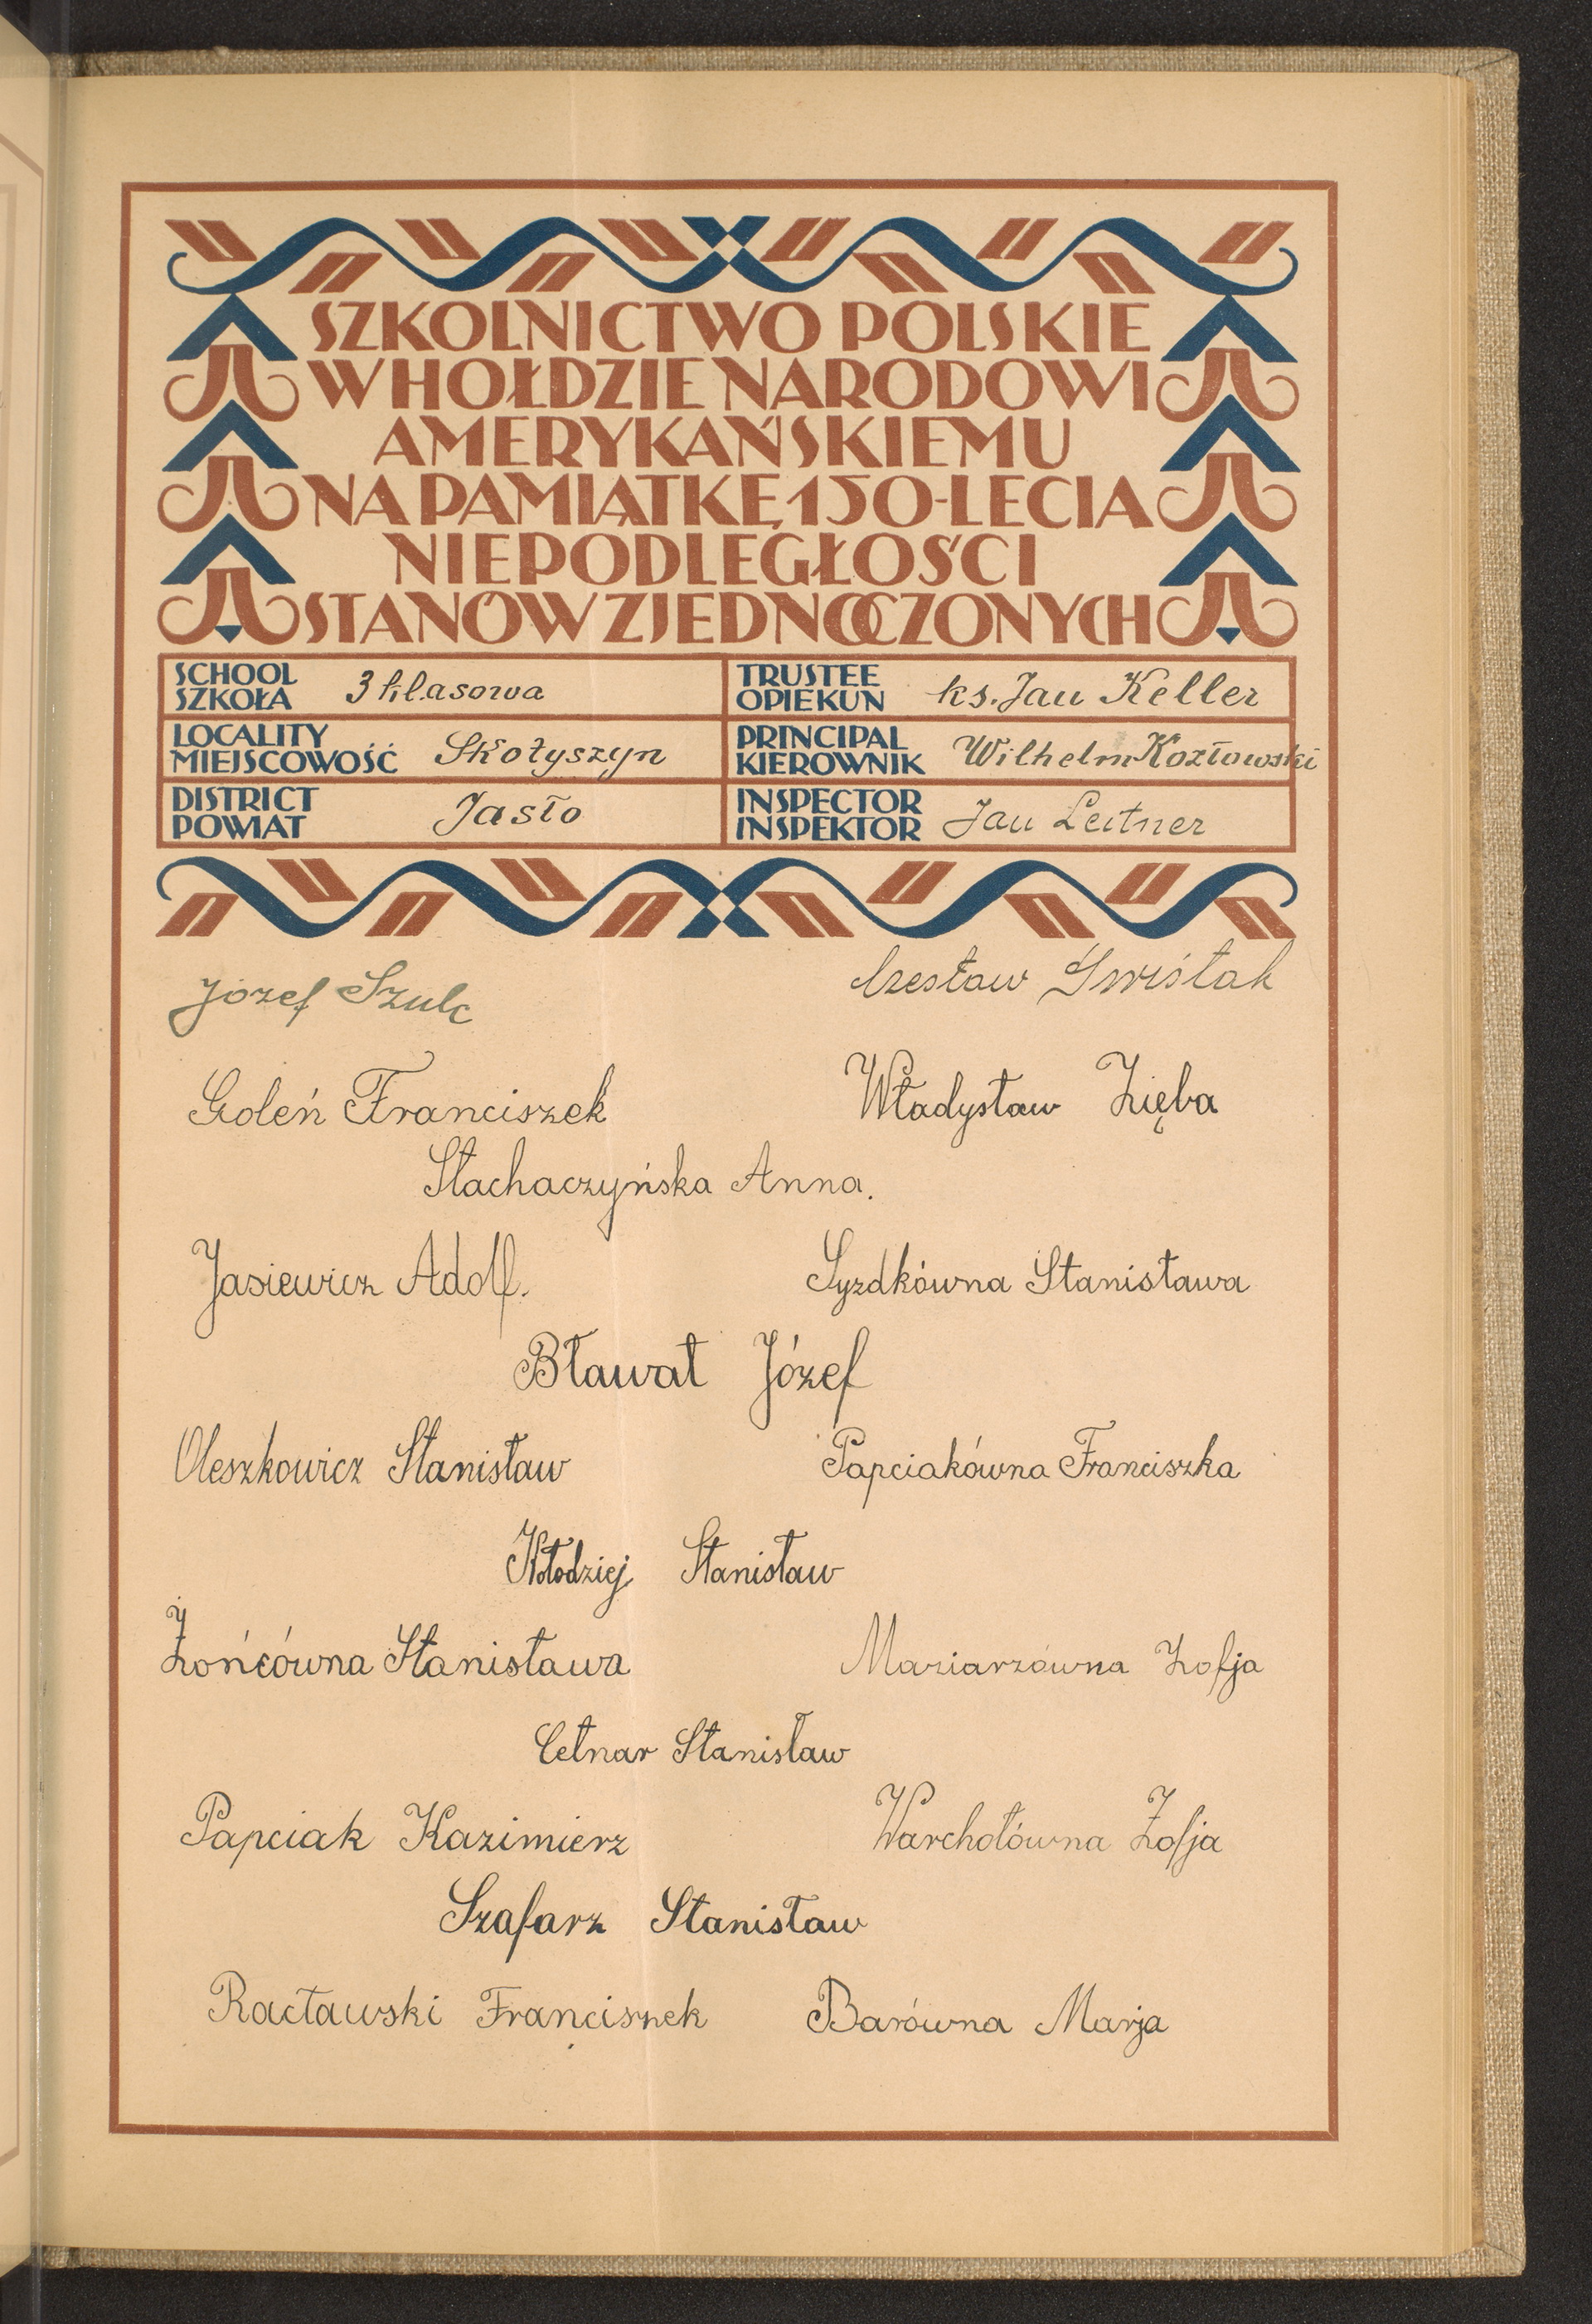 SZKOLNICTWO POLSKIE
W HOŁDZIE NARODOWI
AMERYKAŃSKIEMU
NA PAMIĄTKĘ 150-LECIA
NIEPODLEGŁOŚCI
STANÓW ZJEDNOCZONYCH
SCHOOL
SZKOŁA 3 klasowa
TRUSTEE
OPIEKUN ks. Jan Keller
LOCALITY
MIEJSCOWOŚĆ Skołyszyn
PRINCIPAL
KIEROWNIK Wilhelm Kozłowski
DISTRICT
POWIAT Jasło
INSPECTOR
INSPEKTOR Jan Leitner
Józef Szulc
Czesław Świstak
Goleń Franciszek
Władysław Zięba
Stachaczyńska Anna.
Jasiewicz Adolf.
Syzdkówna Stanisława
Bławat Józef
Oleszkowicz Stanisław
Papciakówna Franciszka
Kołodziej Stanisław
Żońcówna Stanisława
Maziarzówna Zofja
Cetnar Stanisław
Papciak Kazimierz
Warchołówna Zofja
Szafarz Stanisław
Racławski Franciszek
Barówna Marja